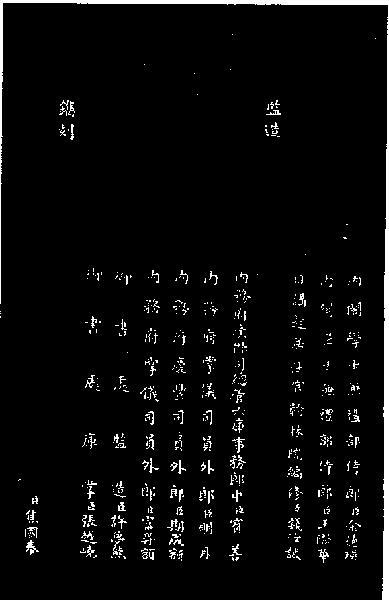 內閣學士兼禮部侍郎臣金德瑛
內閣學士兼禮部侍郎臣王際華
日講起居注官翰林院編修臣錢汝誠
監造
內務府 司總管六庫事務郎中臣 善
內務府掌儀司員外郎臣明月
內務府慶豐司員外郎臣期成額
內務府掌儀司員外郎臣
御書處監造臣
御書處庫掌臣張
鐫刻
臣焦國泰